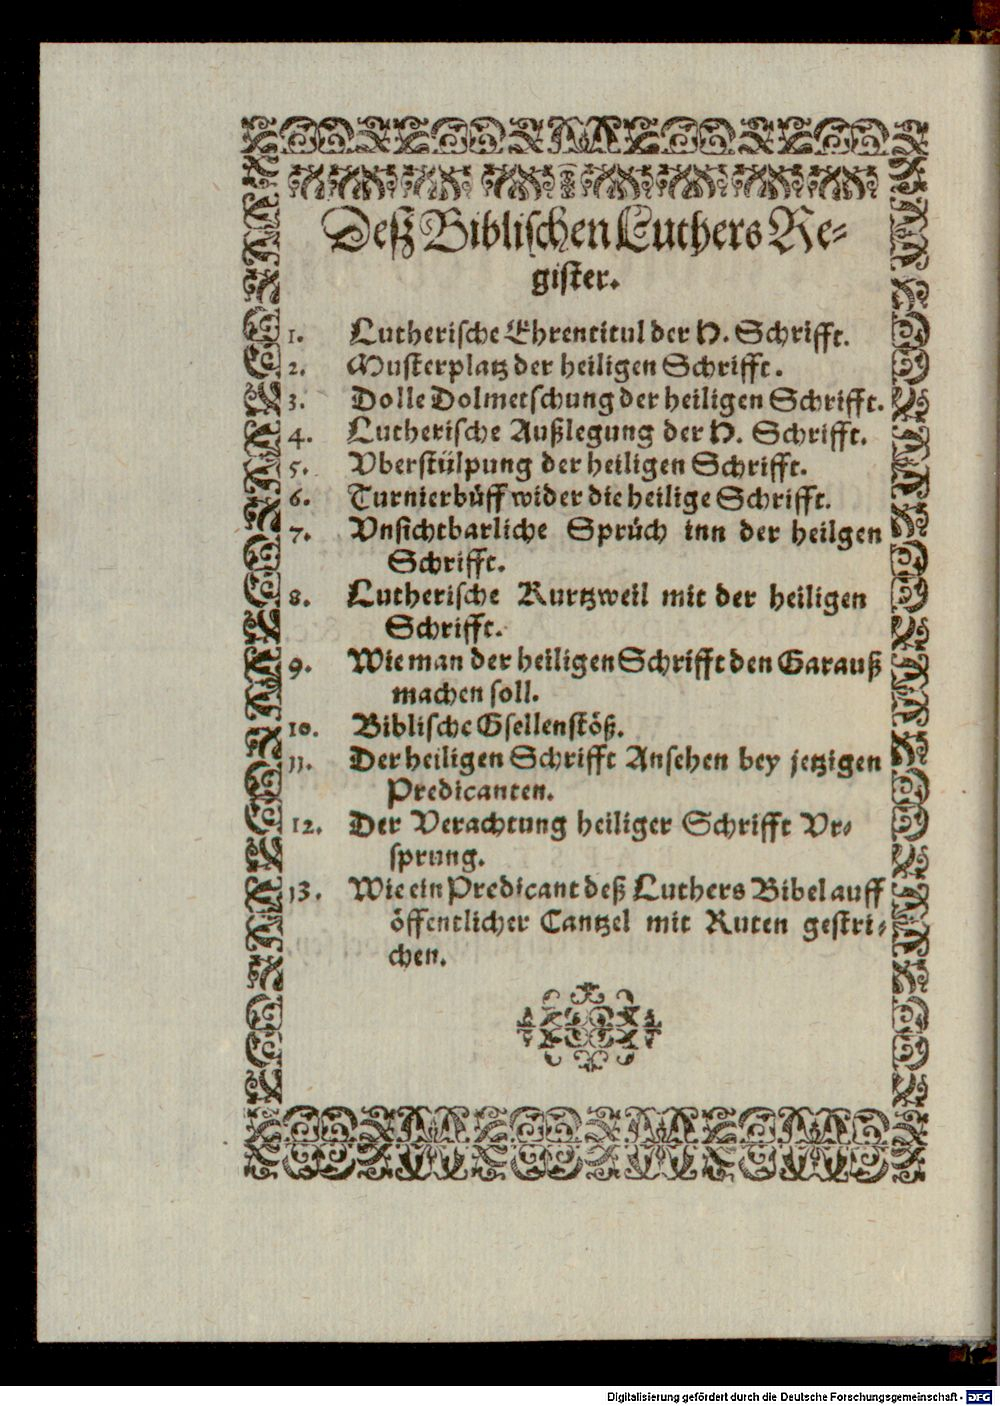 Deß Biblischen Luthers Re-
gister.
1. Lutherische Ehrentitul der H. Schrifft.
2. Musterplatz der heiligen Schrifft.
3. Dolle Dolmetschung der heiligen Schrifft.
4. Lutherische Außlegung der H. Schrifft.
5. Vberstülpung der heiligen Schrifft.
6. Turnierbüff wider die heilige Schrifft.
7. Vnsichtbarliche Sprüch inn der heilgen
Schrifft.
8. Lutherische Kurtzweil mit der heiligen
Schrifft.
9. Wie man der heiligen Schrifft den Garauß
machen soll.
10. Biblische Gsellenstöß.
11. Der heiligen Schrifft Ansehen bey jetzigen
Predicanten.
12. Der Verachtung heiliger Schrifft Vr-
sprung.
13. Wie ein Predicant deß Luthers Bibel auff
öffentlicher Cantzel mit Ruten gestri-
chen.
Digitalisierung gefördert durch die Deutsche Forschungsgemeinschaft - DFG